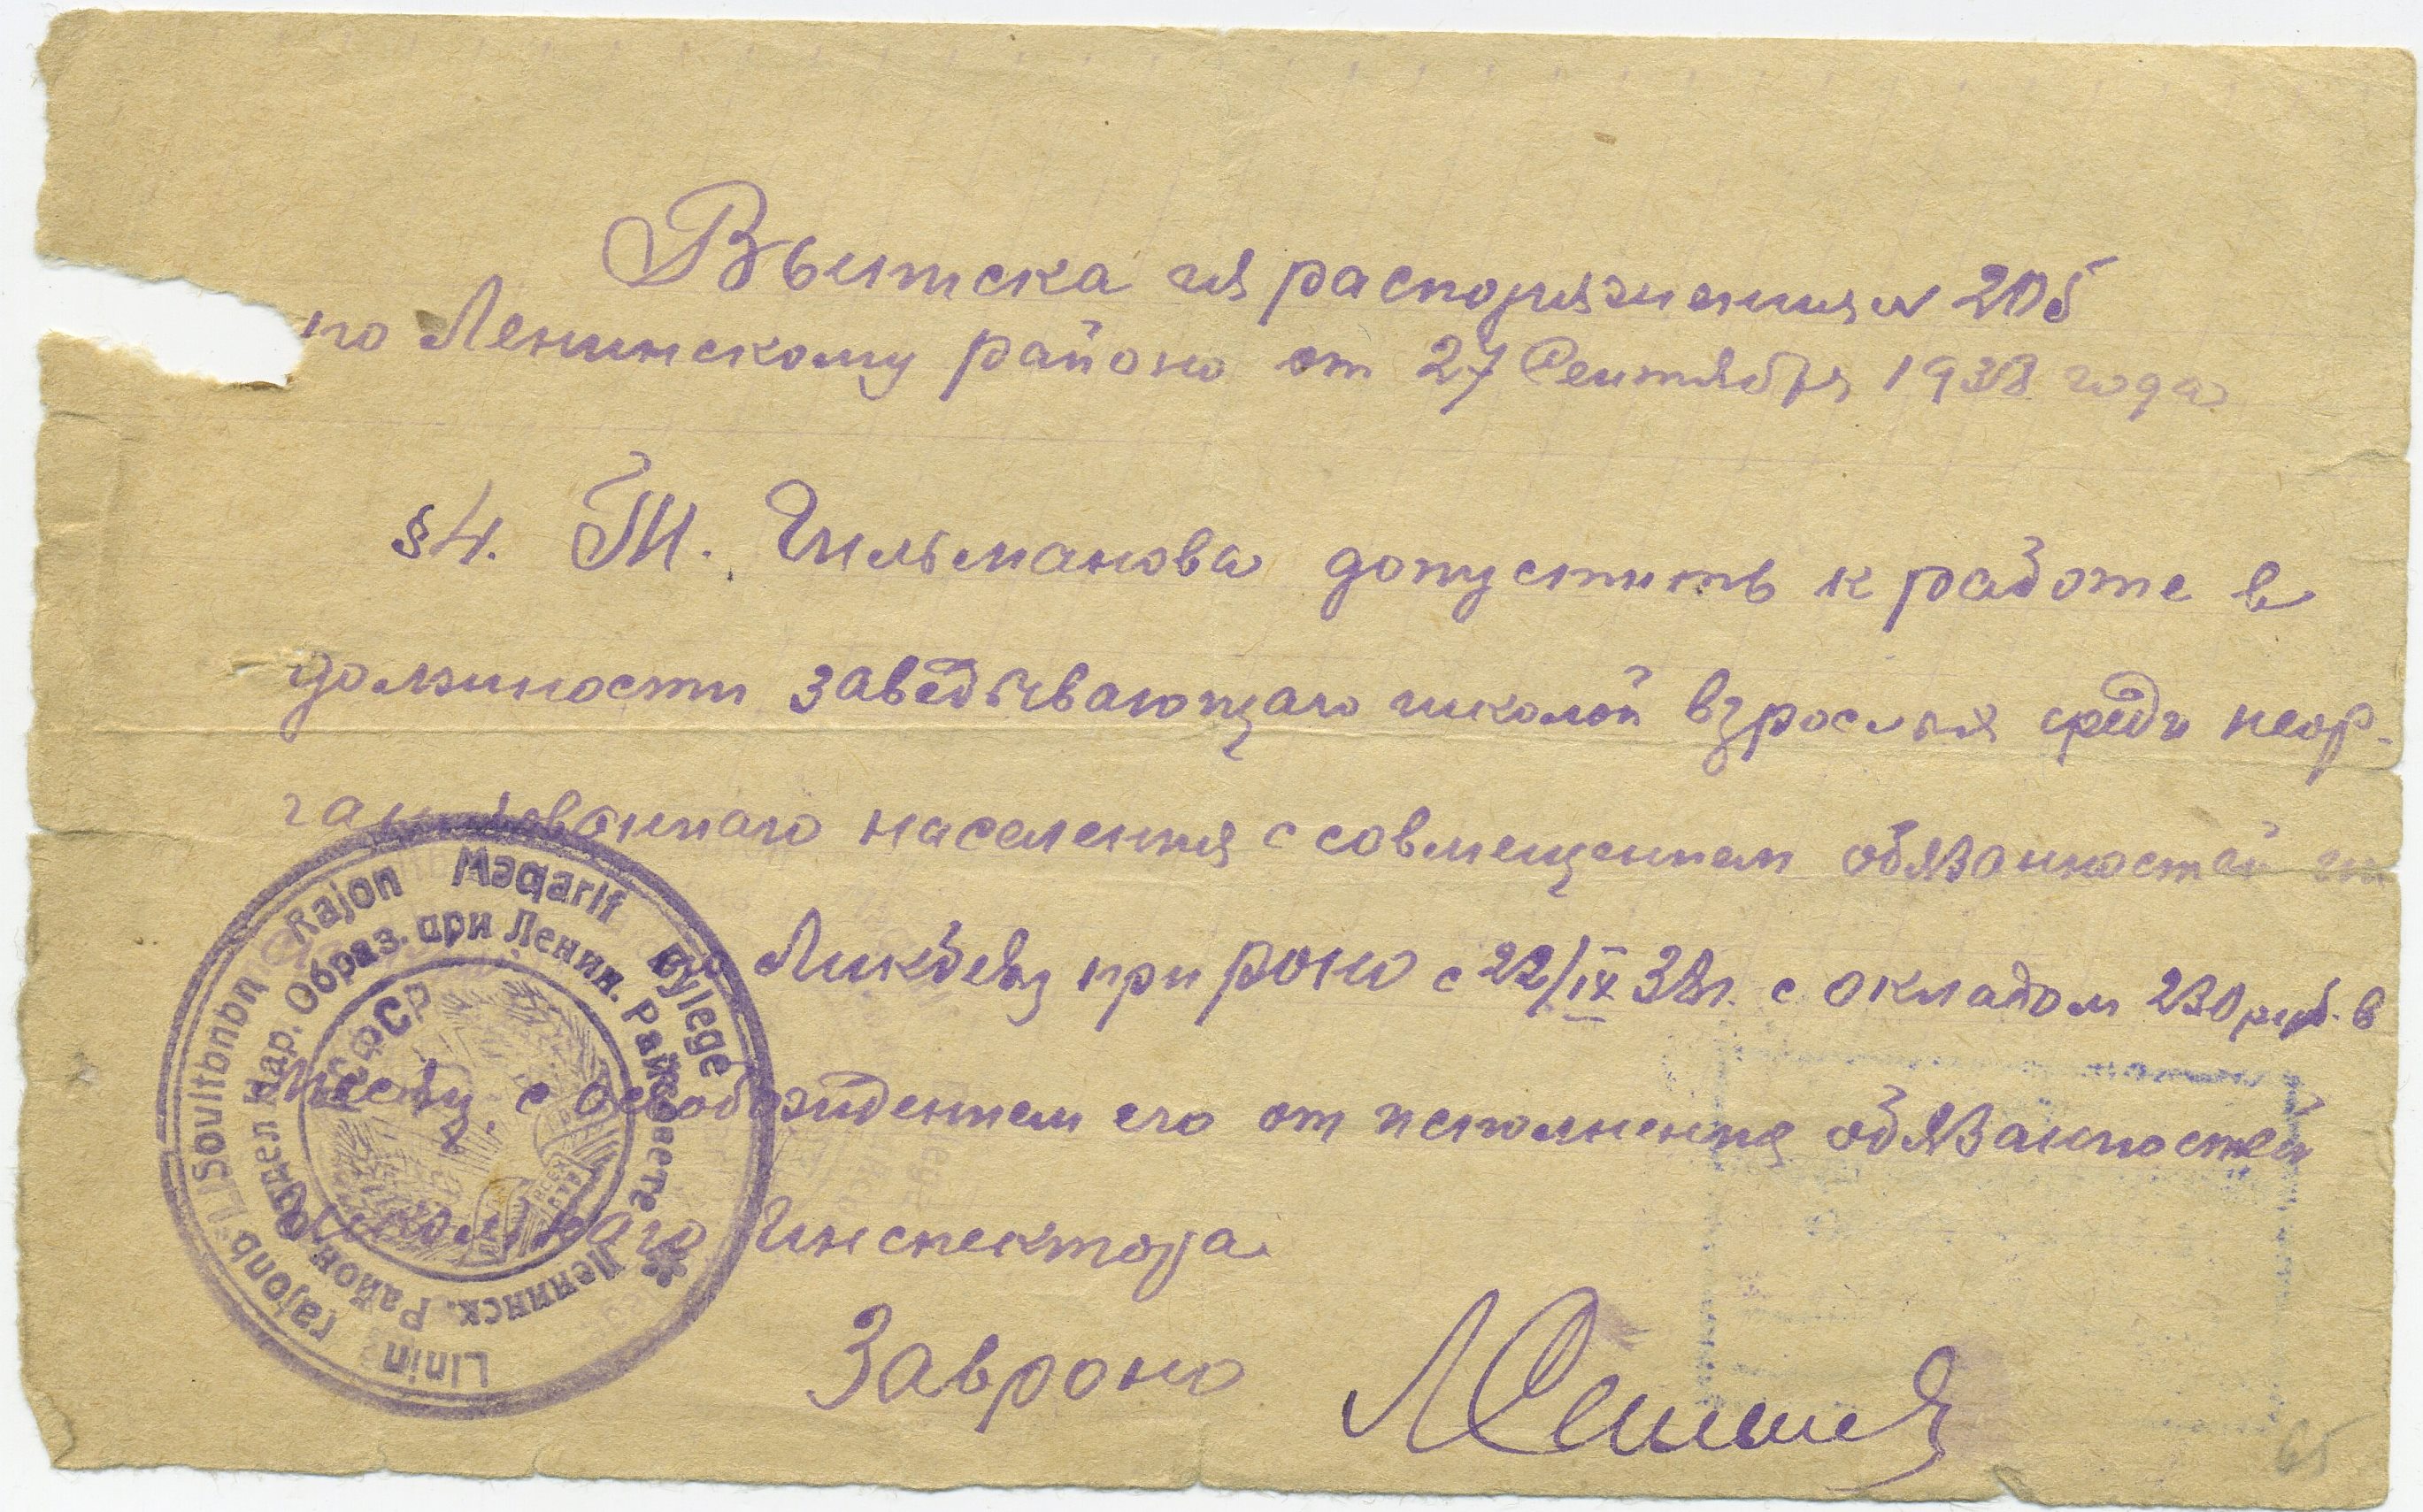 Выписка из распоряжения № 205
по Ленинскому району от 27 Сентября 1938 года
§4. Т. Гильманова допустить к работе в
должности заведывающаго школой взрослых среди неор-
ганизованнаго населения с совмещением обязанностей
Ликбезу при роно с 22/IX 38г. с окладом 230 руб. в
месяц. с освобождением его от исполнения обязанностей
школьнаго Инспектора
Заврайоно
Linin rajonь Soviltьnьn Rajon Maqarif Bylege
Отдел Нар. Образ. при Ленин. Райсовете * Ленинск. Район
РСФСР
65